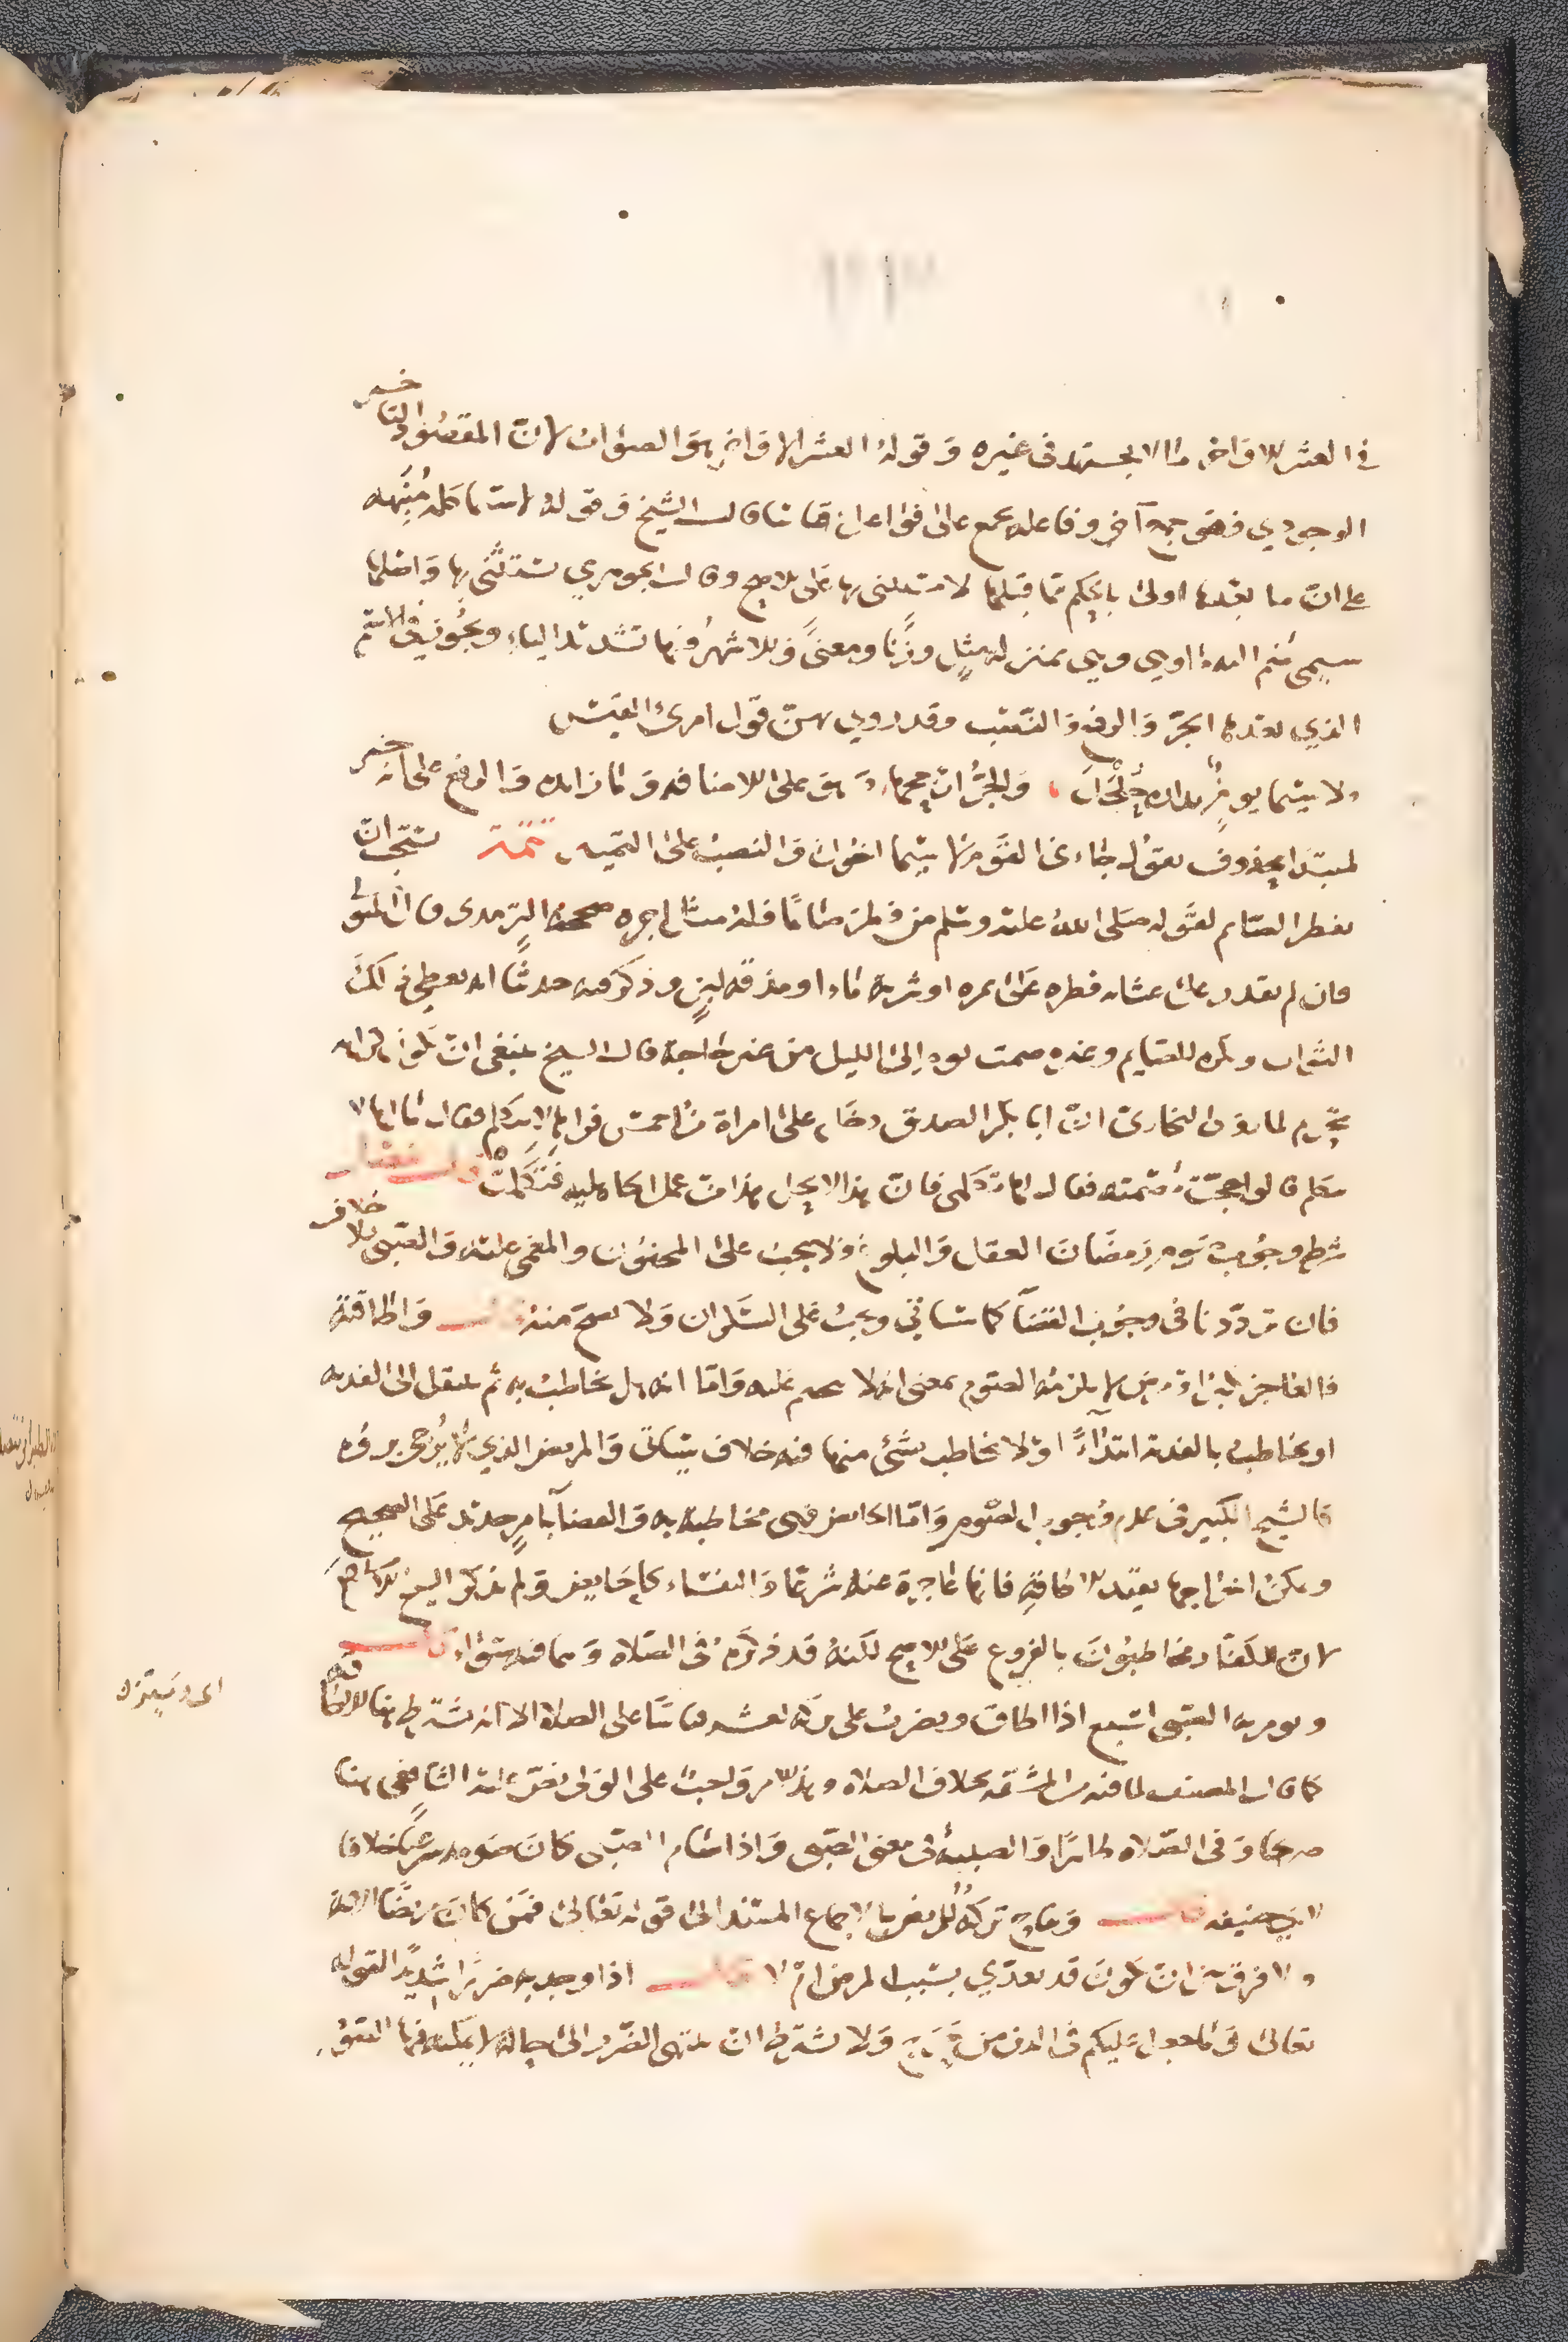 في العشر الاواخر ما لا يجتهد في غيره وقوله العشر الاواخر هو الصواب لان المقصود التاخير
الوجودي فهو جمع آخر وفاعله يجمع على فواعل قياسا قال الشيخ وقوله لاسيما كلمة منبهه
على ان ما بعدها اولى بالحكم مما قبلها لا مستثنى بها على الاصح وقال الجوهري يستثنى بها واصلها
سي ضم اليه ما وهي بمنزلة مثل وزنا ومعنى والاشهر فيها تشديد الياء ويجوز في الاسم
الذي بعدها الجر والرفع والنصب وقد روي بهن قول امرئ القيس
ولا سيما يوم بدارة جلجل والجر ارجحها وهو على الاضافة وما زائده والرفع على انه خبر
لمبتدا محذوف يقول جاءني القوم لا سيما اخوك والنصب على التمييز تتمة يستحب ان
يفطر الصائم لقوله صلى الله عليه وسلم من فطر صائما فله مثل اجره صححه الترمذي قال المتولي
فان لم يقدر على عشائه فطره على تمره او شربة ماء او مذقة لبن وذكر فيه حديثا انه يعطى ذلك
الثواب ويكره للصايم وغيره صمت يوم الى الليل من غير حاجة قال الشيخ ينبغي ان تكون كراهه
تحريم لما روى البخاري ان ابا بكر الصديق دخل على امراة من احمس فراها لا تتكلم فقال ما لها لا
تتكلم قالوا حجت مصمته فقال لها تكلمي فان هذا لا يحل هذا من عمل الجاهليه فتكلمت فصل
شرط وجوب صوم رمضان العقل والبلوغ ولا يجب على المجنون والمغمى عليه والصبي بلا خلاف
فان ترددنا في وجوب القضا كما سياتي ويجب على السكران ولا يصح منه قال واطاقته
فالعاجز لكبر او مرض لا يلزمه الصوم بمعنى انه لا يتحتم عليه واما انه هل يخاطب به ثم ينتقل الى الفديه
او يخاطب بالفدية ابتداءً او لا يخاطب بشئ منهما ففيه خلاف سياتي والمريض الذي لا يرجى بروه
كالشيخ الكبير في عدم وجوب الصوم واما الحائض فهي مخاطبة به والقضا بامر جديد على الصحيح
ويمكن اخراجها بقيد الاطاقة فانها عاجزة عنه شرعا والنفساء كالحايض ولم يذكر الشيخ الاسلام
لان الكفار مخاطبون بالفروع على الاصح لكنه قد ذكره في الصلاه وهما فيه سواء قال
ويومر به الصبي لسبع اذا اطاق ويضرب على تركه لعشر قياسا على الصلاة الا انه يشترط هنا الاطاقه
كما قال المصنف لما فيه من المشقه بخلاف الصلاه وهذا الامر واجب على الولي نص عليه الشافعي هنا
صريحا وفي الصلاه ظاهرا والصبية في معنى الصبي واذا صام الصبي كان صومه شرعيا خلافا
لابي حنيفه قال ويباح تركه للمريض بالاجماع المستند الى قوله تعالى فمن كان مريضا الاية
ولا فرق بين ان يكون قد تعدى بسبب المرض ام لا قال اذا وجد به ضررا شديدا لقوله
تعالى وما جعل عليكم في الدين من حرج ولا يشترط ان ينتهي الضرر الى حالة لا يمكنه فيها الصوم